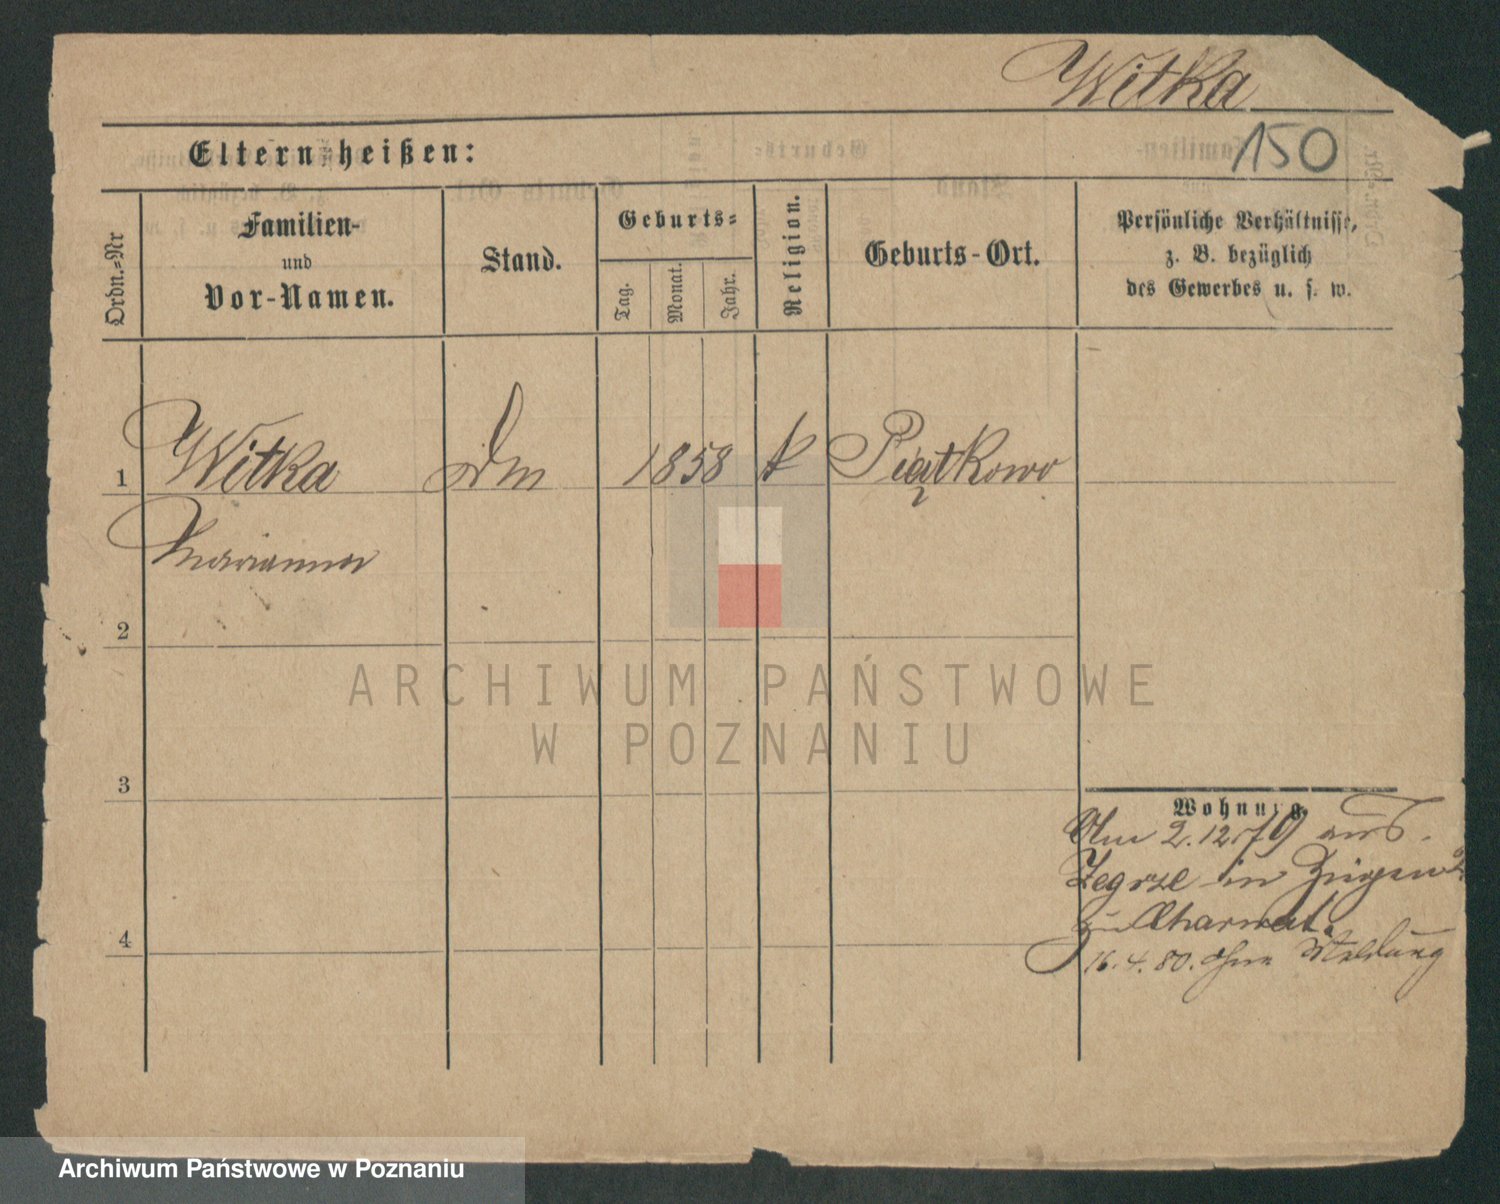 Witka
150
Eltern heißen:
Ordn.-Nr
Familien-
und
Vor-Namen.
Stand.
Geburts-
Tag.
Monat.
Jahr.
Religion.
Geburts-Ort.
Persönliche Verhältnisse,
z. B. bezüglich
des Gewerbes u. s. w.
1 Witka Dm 1858 k Piątkowo
Marianna
2
3
4
Wohnung.
Am 2.12.79 aus
Zegrze in
zu
16.4.80. ohne Meldung
ARCHIWUM PAŃSTWOWE
W POZNANIU
Archiwum Państwowe w Poznaniu